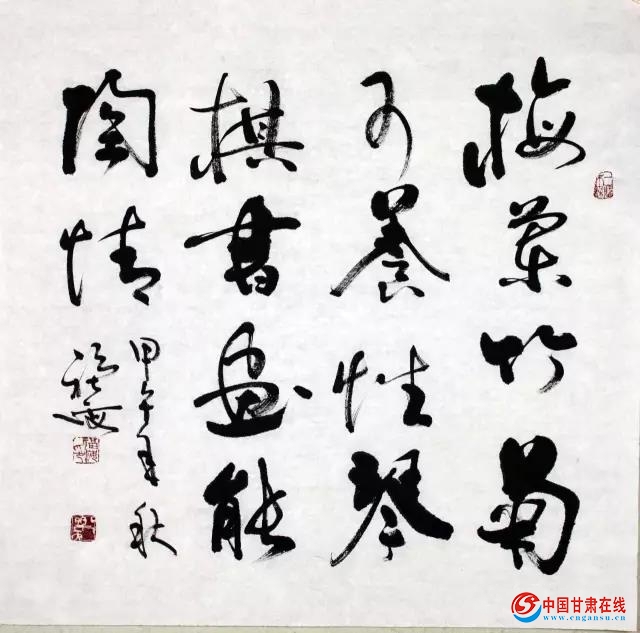 梅兰竹菊
可養性琴
棋書画能
陶情
甲午年秋
中国甘肃在线
www.cngansu.cn